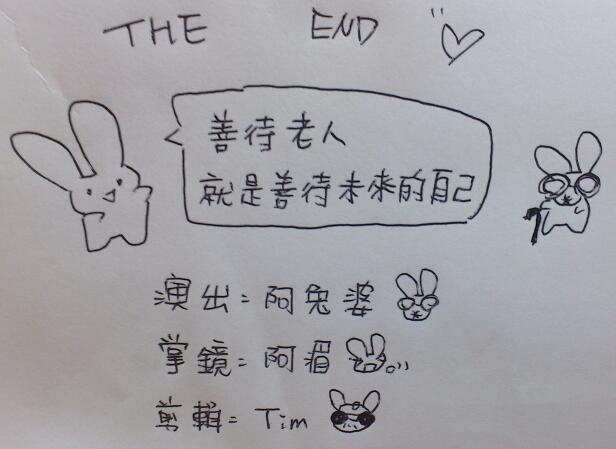 THE END
善待老人
就是善待未來的自己
演出：阿兔婆
掌鏡：阿湄
剪輯：Tim